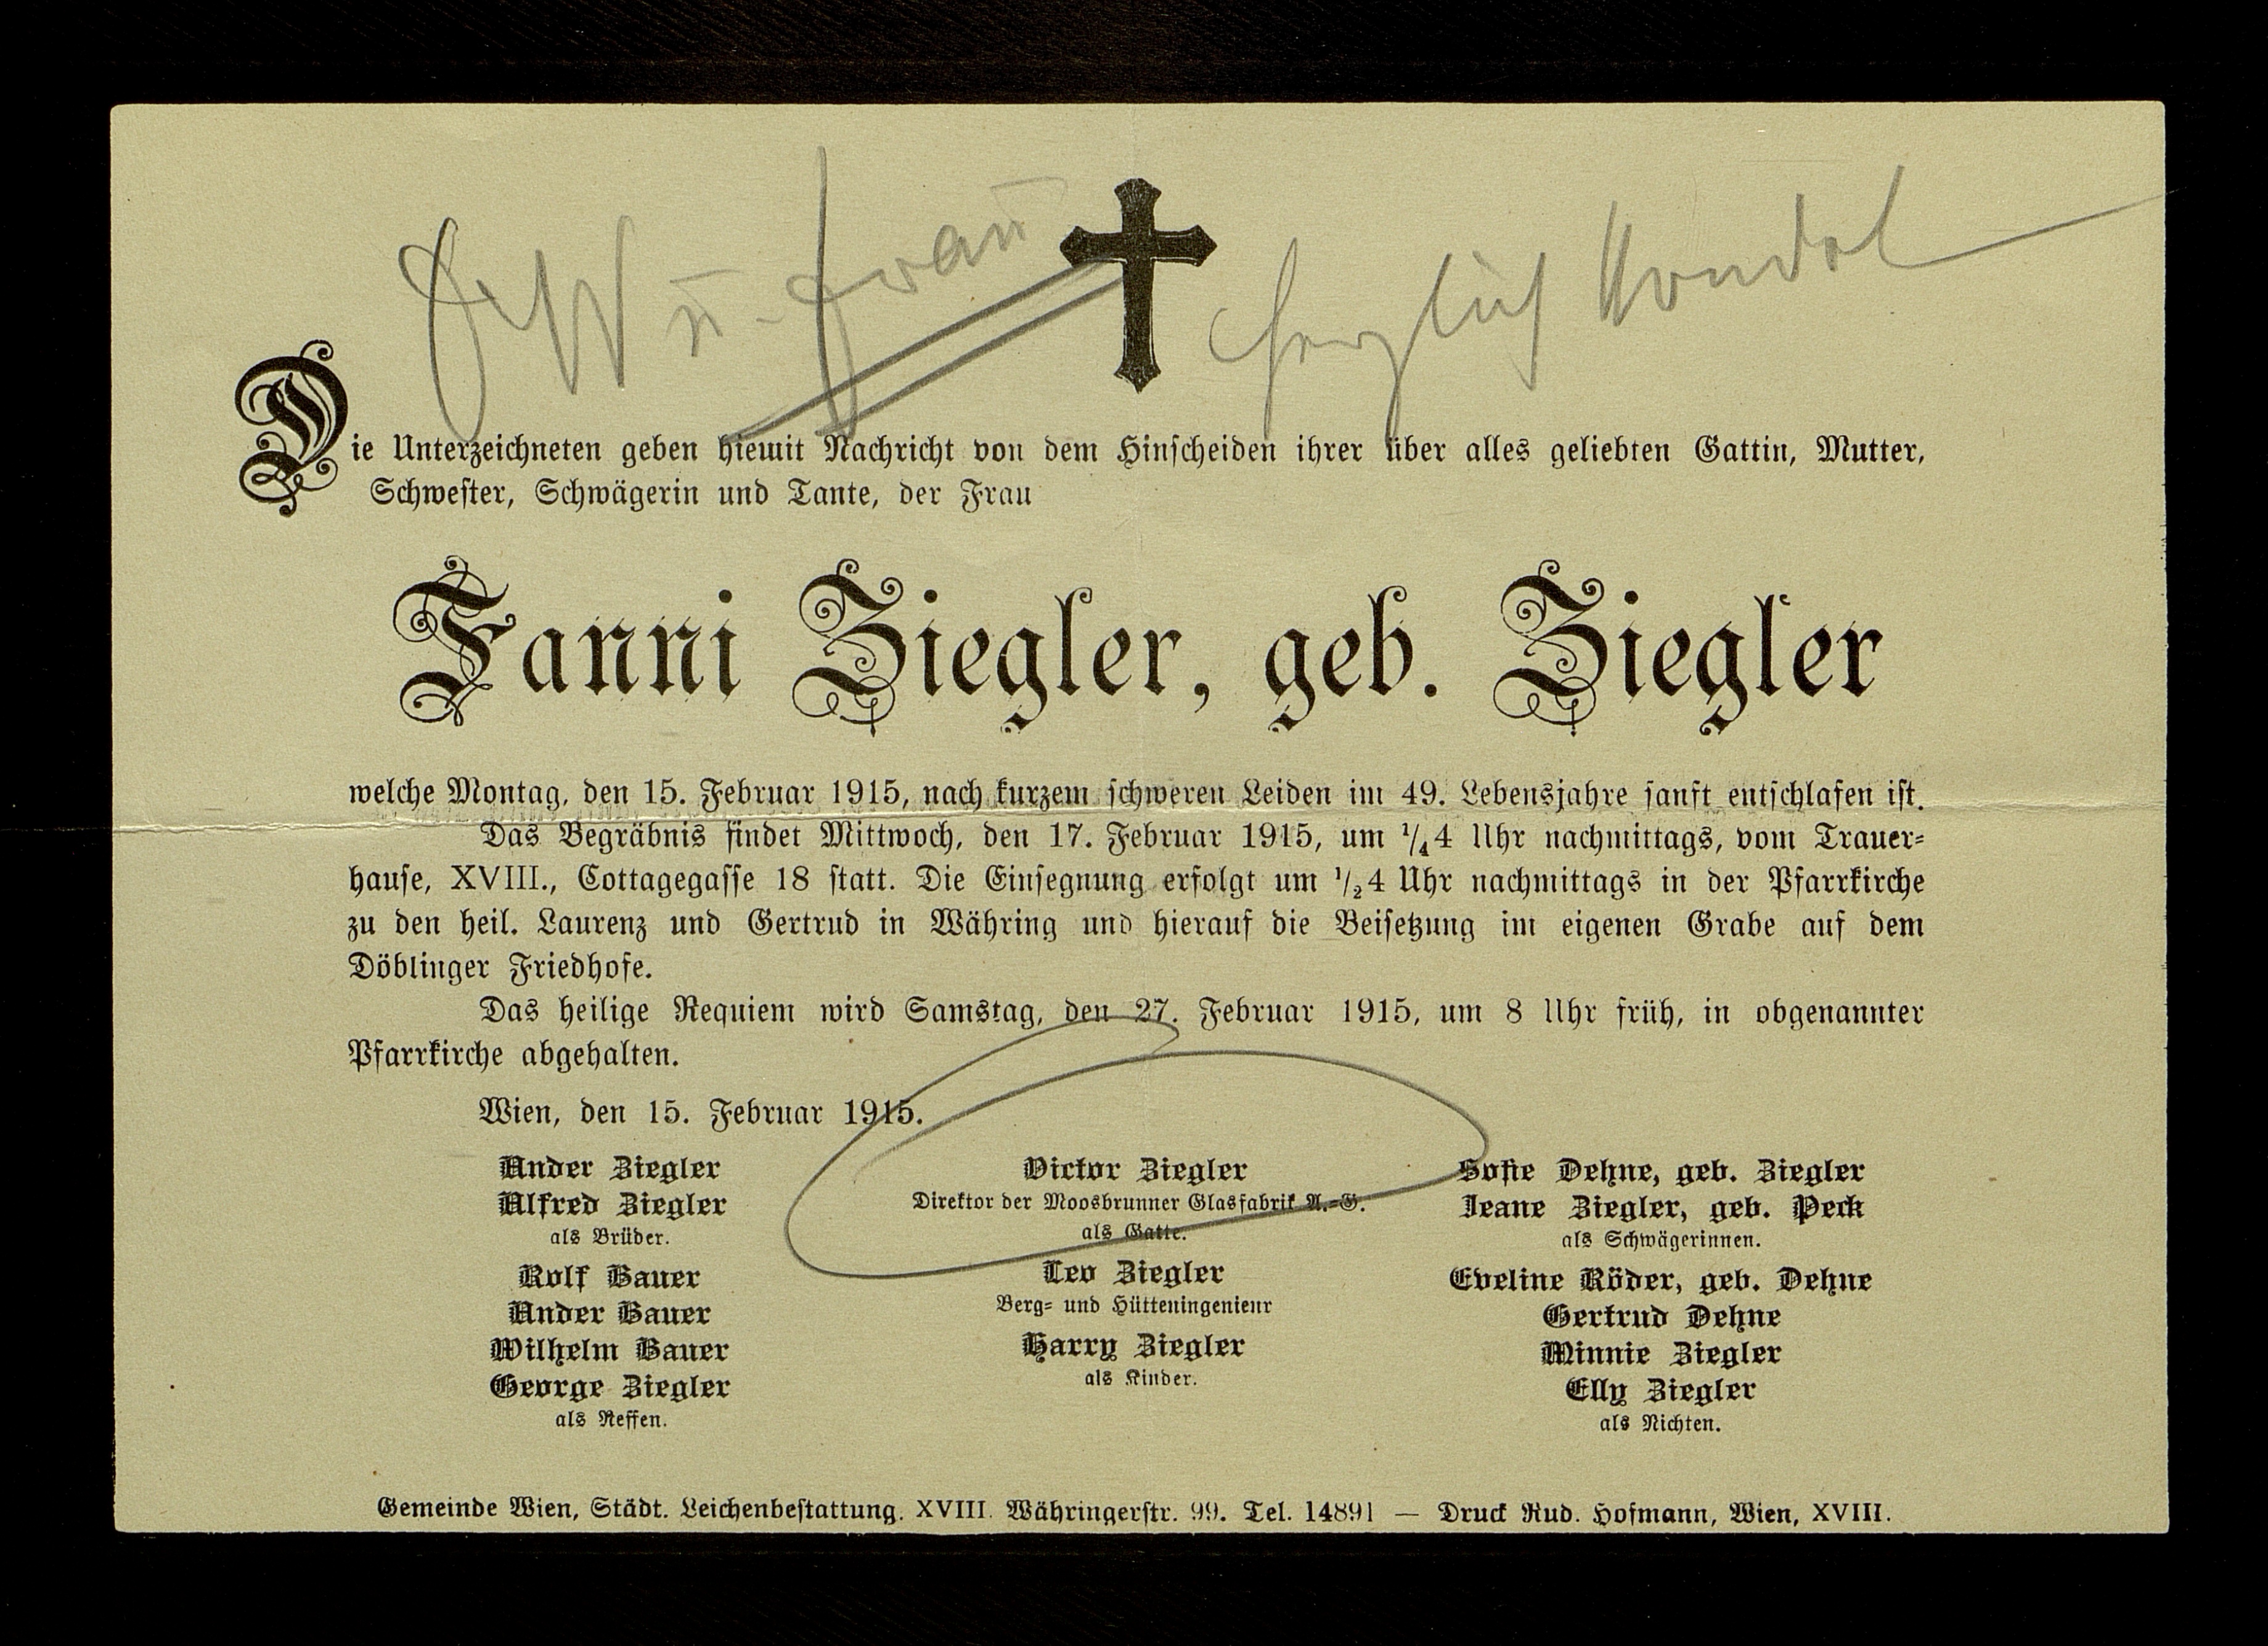 herzlich Kondol
Die Unterzeichneten geben hiemit Nachricht von dem Hinscheiden ihrer über alles geliebten Gattin, Mutter,
Schwester, Schwägerin und Tante, der Frau
Fanni Ziegler, geb. Ziegler
welche Montag, den 15. Februar 1915, nach kurzem schweren Leiden im 49. Lebensjahre sanft entschlafen ist.
Das Begräbnis findet Mittwoch, den 17. Februar 1915, um 1/4 4 Uhr nachmittags, vom Trauer-
hause, XVIII., Cottagegasse 18 statt. Die Einsegnung erfolgt um 1/2 4 Uhr nachmittags in der Pfarrkirche
zu den heil. Laurenz und Gertrud in Währing und hierauf die Beisetzung im eigenen Grabe auf dem
Döblinger Friedhofe.
Das heilige Requiem wird Samstag, den 27. Februar 1915, um 8 Uhr früh, in obgenannter
Pfarrkirche abgehalten.
Wien, den 15. Februar 1915.
Ander Ziegler
Alfred Ziegler
als Brüder.
Rolf Bauer
Ander Bauer
Wilhelm Bauer
George Ziegler
als Neffen.
Victor Ziegler
Direktor der Moosbrunner Glasfabrik A.-G.
als Gatte.
Leo Ziegler
Berg- und Hütteningenieur
Harry Ziegler
als Kinder.
Sofie Dehne, geb. Ziegler
Jeane Ziegler, geb. Peck
als Schwägerinnen.
Eveline Röder, geb. Dehne
Gertrud Dehne
Minnie Ziegler
Elly Ziegler
als Nichten.
Gemeinde Wien, Städt. Leichenbestattung. XVIII. Währingerstr. 99. Tel. 14891 — Druck Rud. Hofmann, Wien, XVIII.